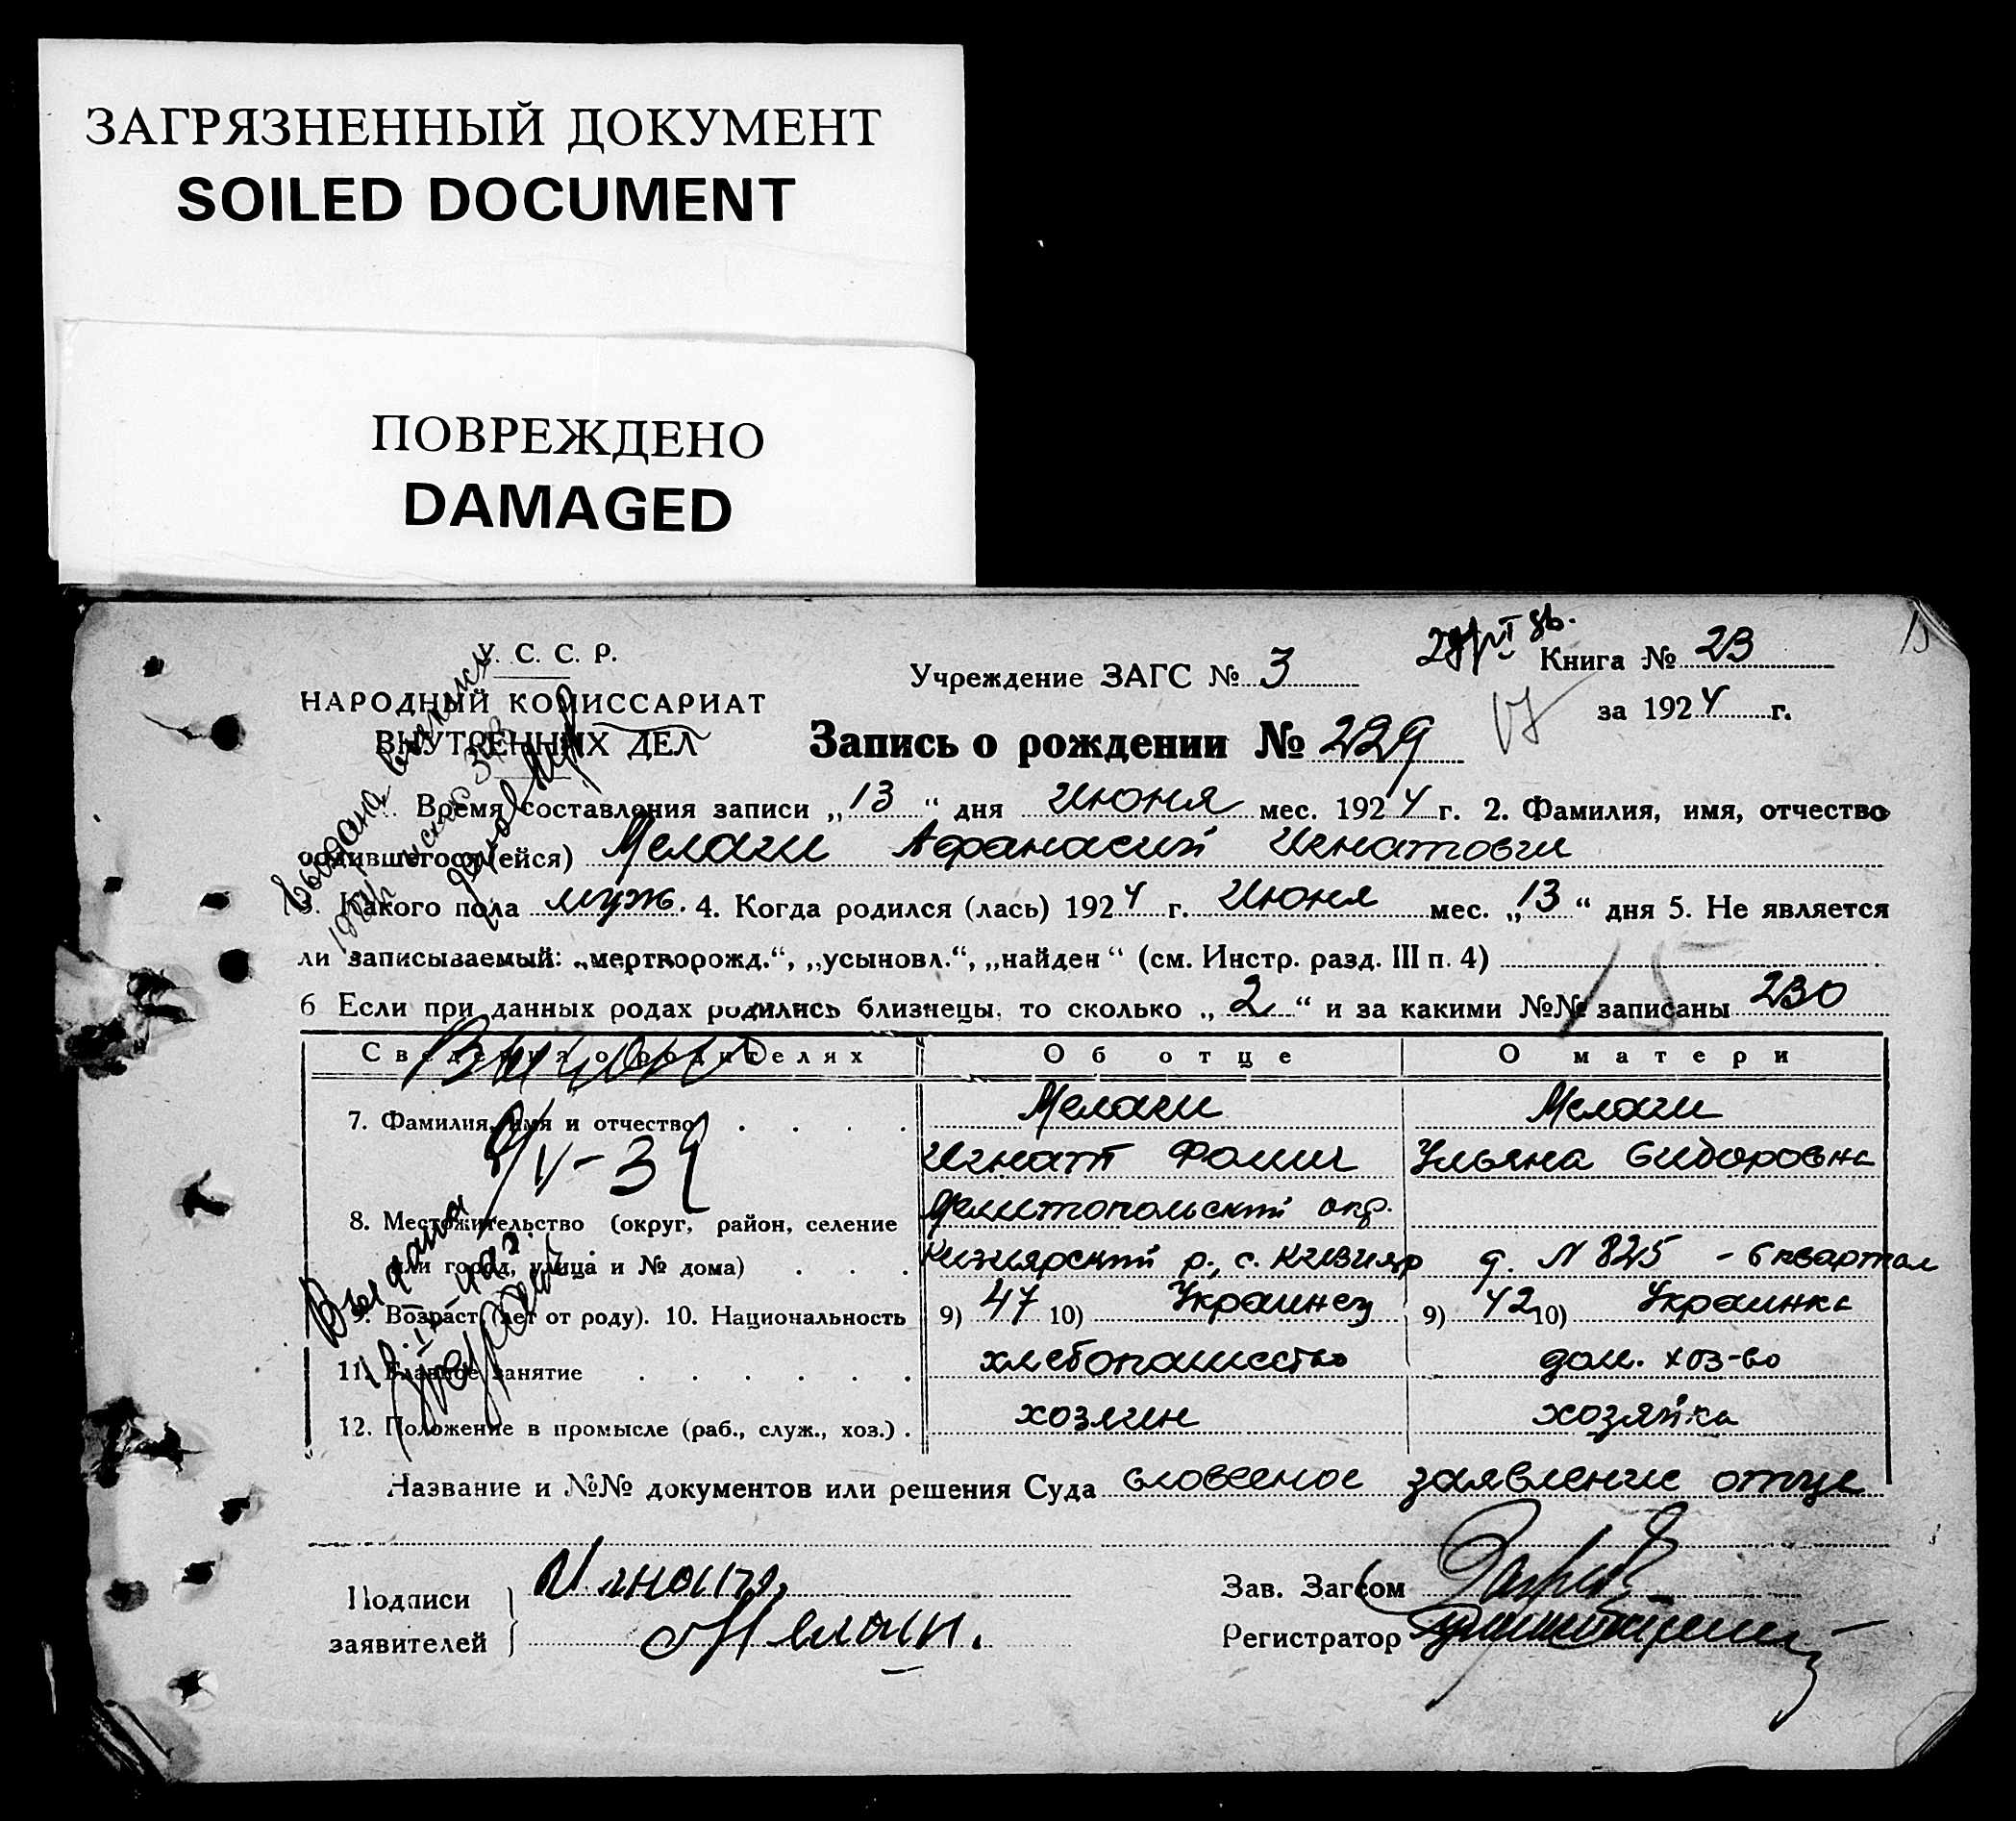 ЗАГРЯЗНЕННЫЙ ДОКУМЕНТ
SOILED DOCUMENT
ПОВРЕЖДЕНО
DAMAGED
У. С. С. Р.
НАРОДНЫЙ КОМИССАРИАТ
ВНУТРЕННИХ ДЕЛ
Учреждение ЗАГС № 3
Книга № 23
за 1924 г.
15
Запись о рождении № 229
Время составления записи „13“ дня Июня мес. 1924 г. 2. Фамилия, имя, отчество
родившегося (ейся) Мелаги Афанасий Игнатович
3. Какого пола муж. 4. Когда родился (лась) 1924 г. Июня мес. „13“ дня 5. Не является
ли записываемый: „мертворожд.“, „усыновл.“, „найден“ (см. Инстр. разд. III п. 4)
15
6 Если при данных родах родились близнецы, то сколько „2“ и за какими №№ записаны 230
Сведения о родителях Об отце О матери
7. Фамилия, имя и отчество Мелаги Мелаги
Игнат Фомич Ульяна Сидоровна
8. Местожительство (округ, район, селение Мелитопольский окр.
или город, улица и № дома) Кизиярский р., с. Кизияр д. N 825 - 6 квартал
9. Возраст (лет от роду). 10. Национальность 9) 47 10) Украинец 9) 42 10) Украинка
11. Главное занятие хлебопашество дом. хоз-во
12. Положение в промысле (раб., служ., хоз.) хозяин хозяйка
Название и №№ документов или решения Суда словесное заявление отца
Подписи
заявителей
Игнат
Мелаги.
Зав. Загсом
Регистратор
Выдана выпись
Выдано
Выдана